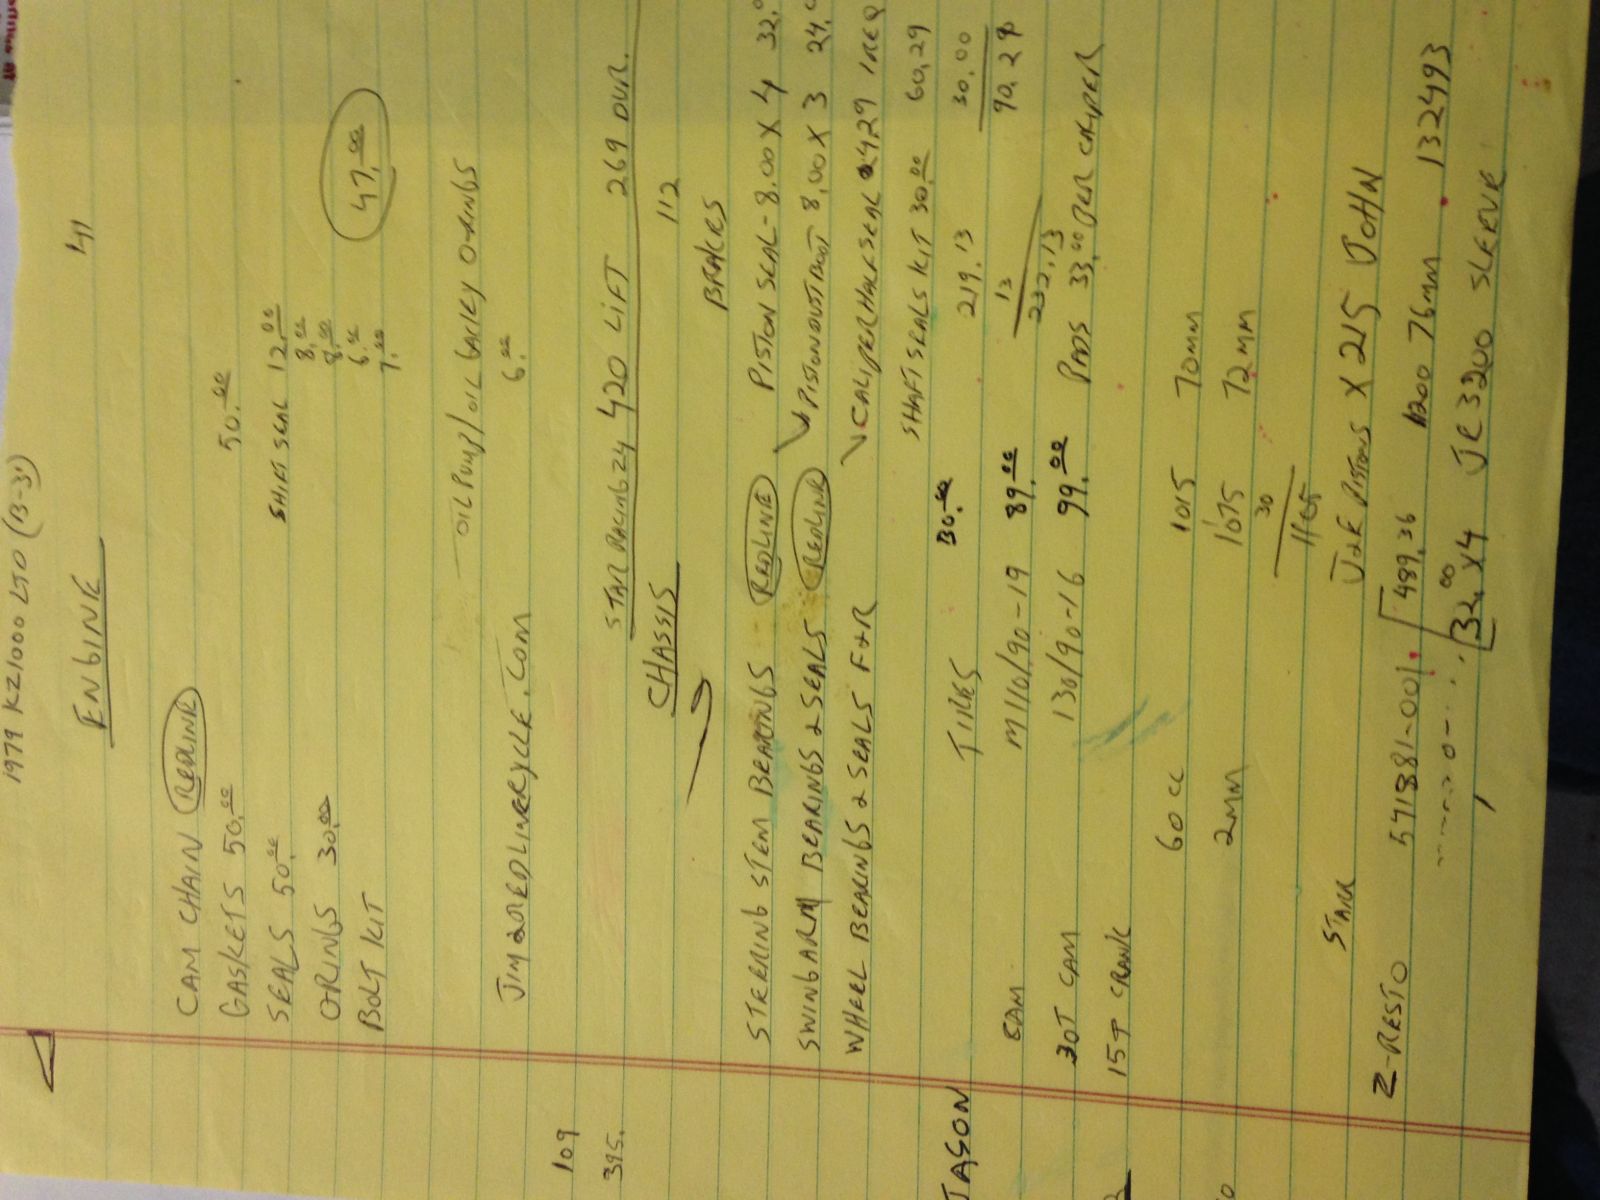 1979 KZ1000 LTD (B-3)
ENGINE
CAM CHAIN REDLINE
GASKETS 50.00 50.00
SEALS 50.00 SHIFT SEAL 12.00
8.00
ORINGS 30.00 8.00
6.00
BOLT KIT 7.00 47.00
OIL PUMP/OIL GALLEY O-RINGS
JIM@REDLINECYCLE.COM 6.00
109
395. STAR RACING 24 420 LIFT 269 DUR.
CHASSIS 112
BRAKES
STEERING STEM BEARINGS - REDLINE PISTON SEAL - 8.00 X 4 32.0
SWINGARM BEARINGS & SEALS REDLINE PISTON DUST BOOT 8.00 X 3 24.0
WHEEL BEARINGS & SEALS F&R CALIPER HALF SEAL 4.29 1 REQ
SHAFT SEALS KIT 30.00 60.29
JASON TIRES 30.00 219.13 30.00
13 90.29
CAM M110/90-19 89.00 232.13
30T CAM 130/90-16 99.00 PADS 33.00 PER CALIPER
15T CRANK
60cc 1015 70mm
2MM 1075 72MM
30
1105
STAR J&E PISTONS X 215 JOHN
Z-RESTO 541881-001 489.36 1200 76MM 132493
32.00 X4 JE 3200 SLEEVE